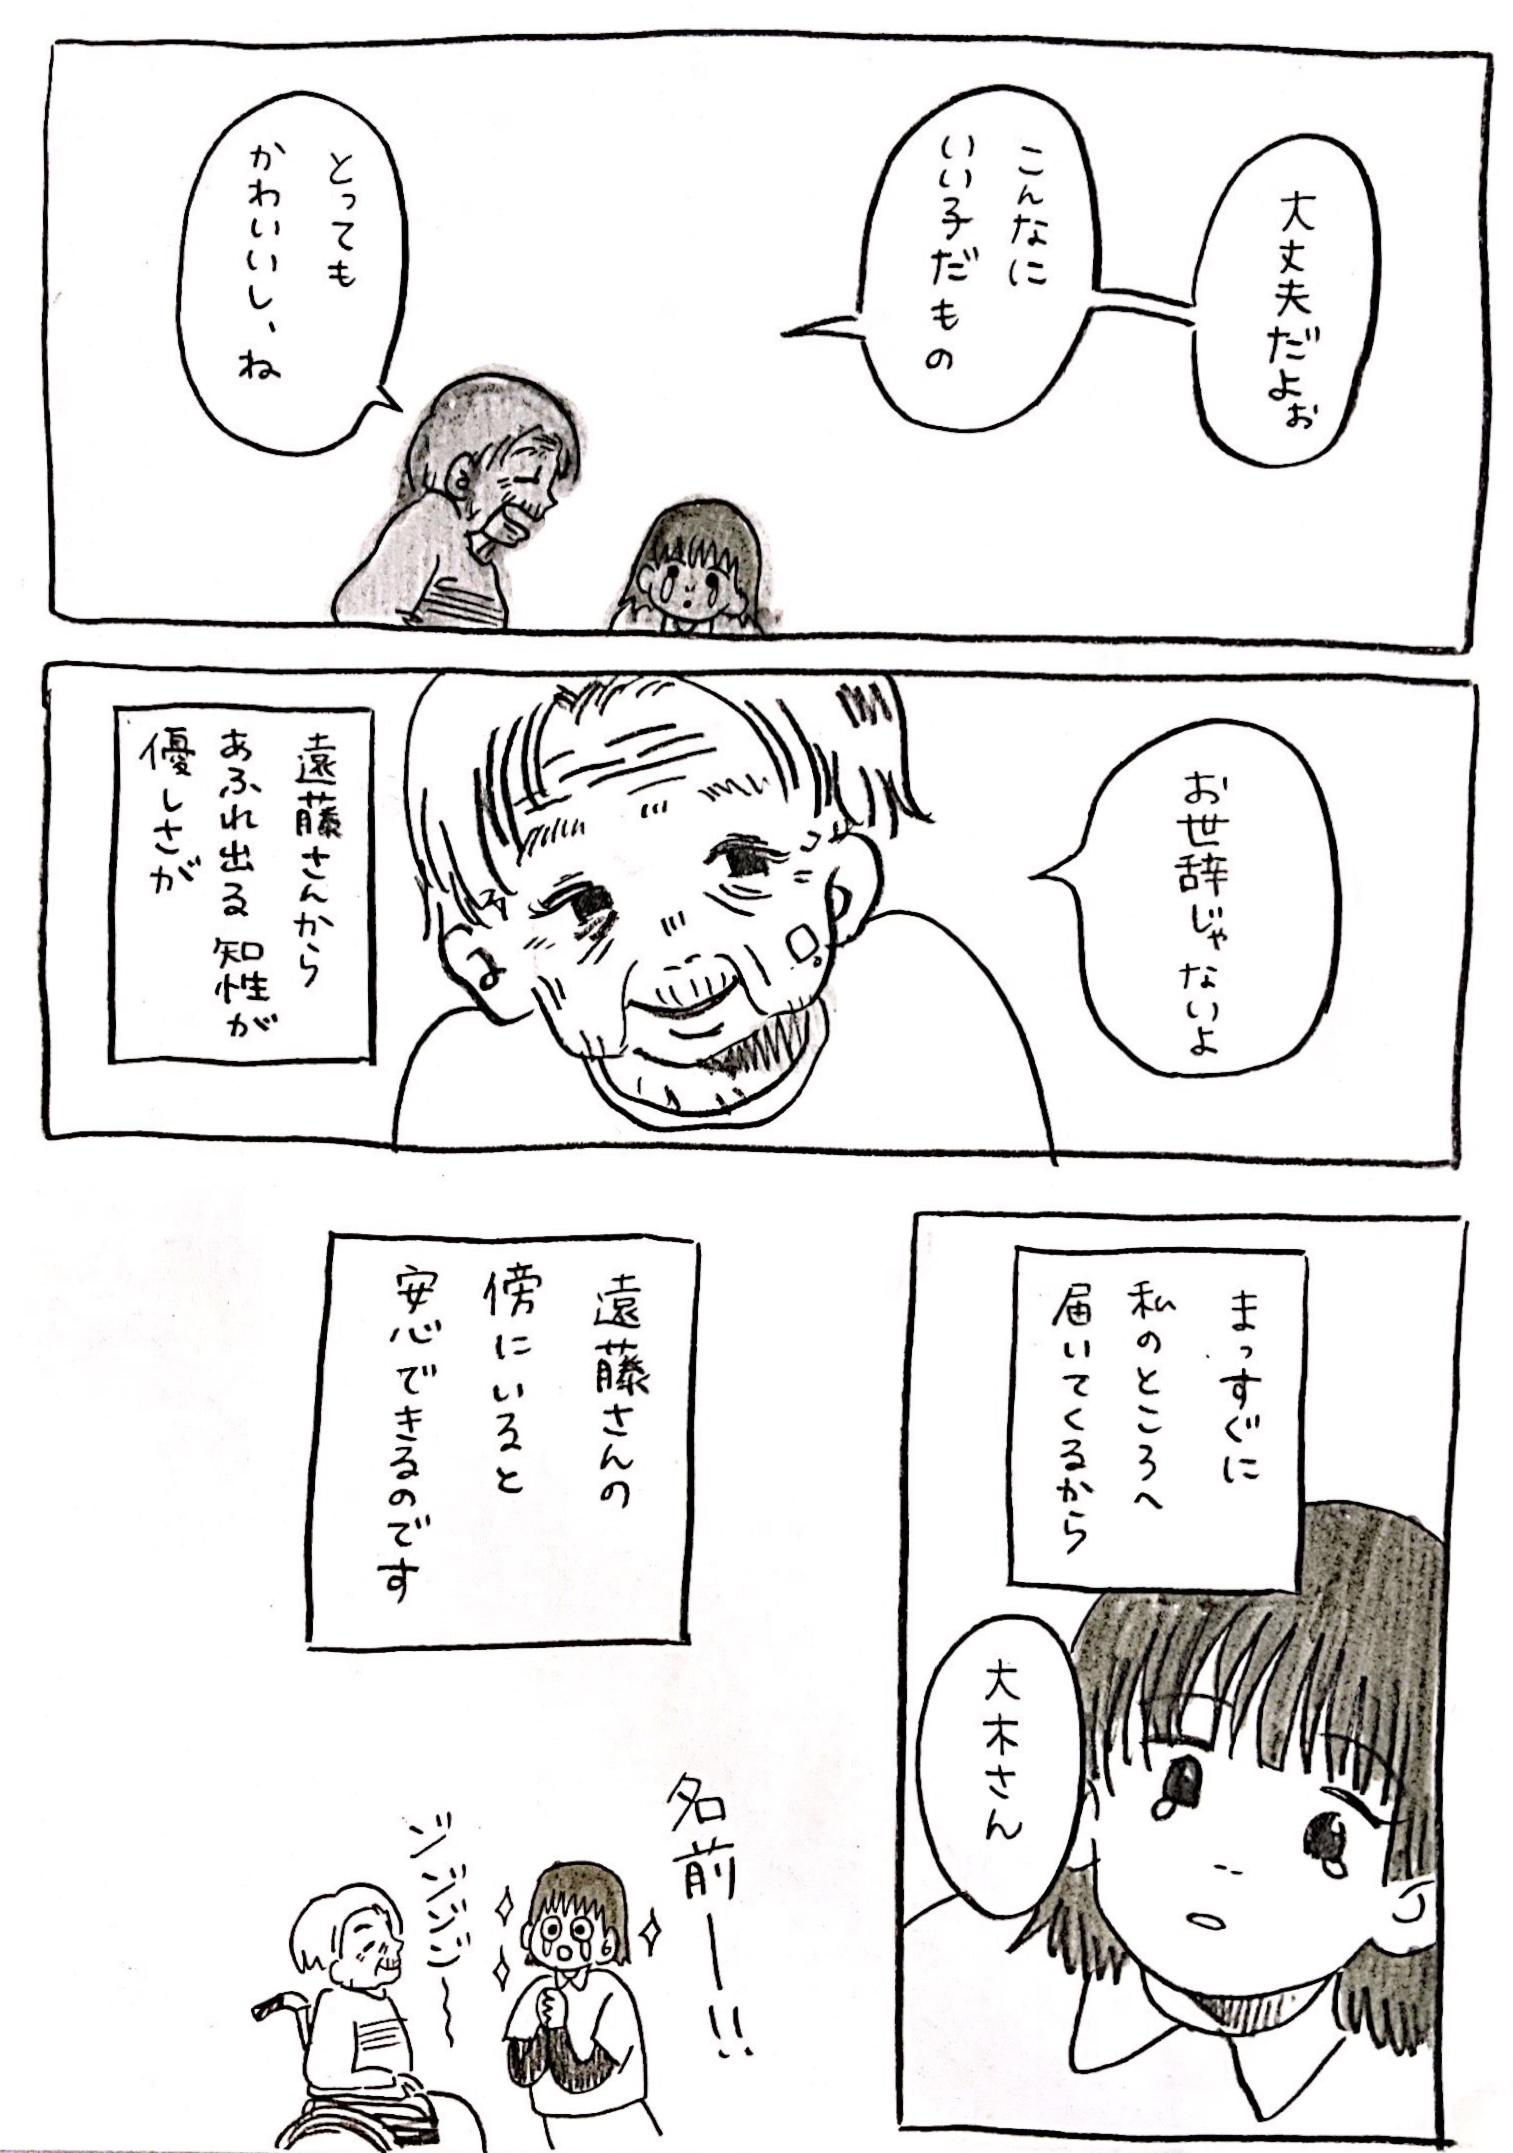 大丈夫だよぉ
こんなに
いい子だもの
とっても
かわいいし、ね
お世辞じゃないよ
遠藤さんから
あふれ出る知性が
優しさが
まっすぐに
私のところへ
届いてくるから
大木さん
遠藤さんの
傍にいると
安心できるのです
名前ー!!
ジジジジ〜